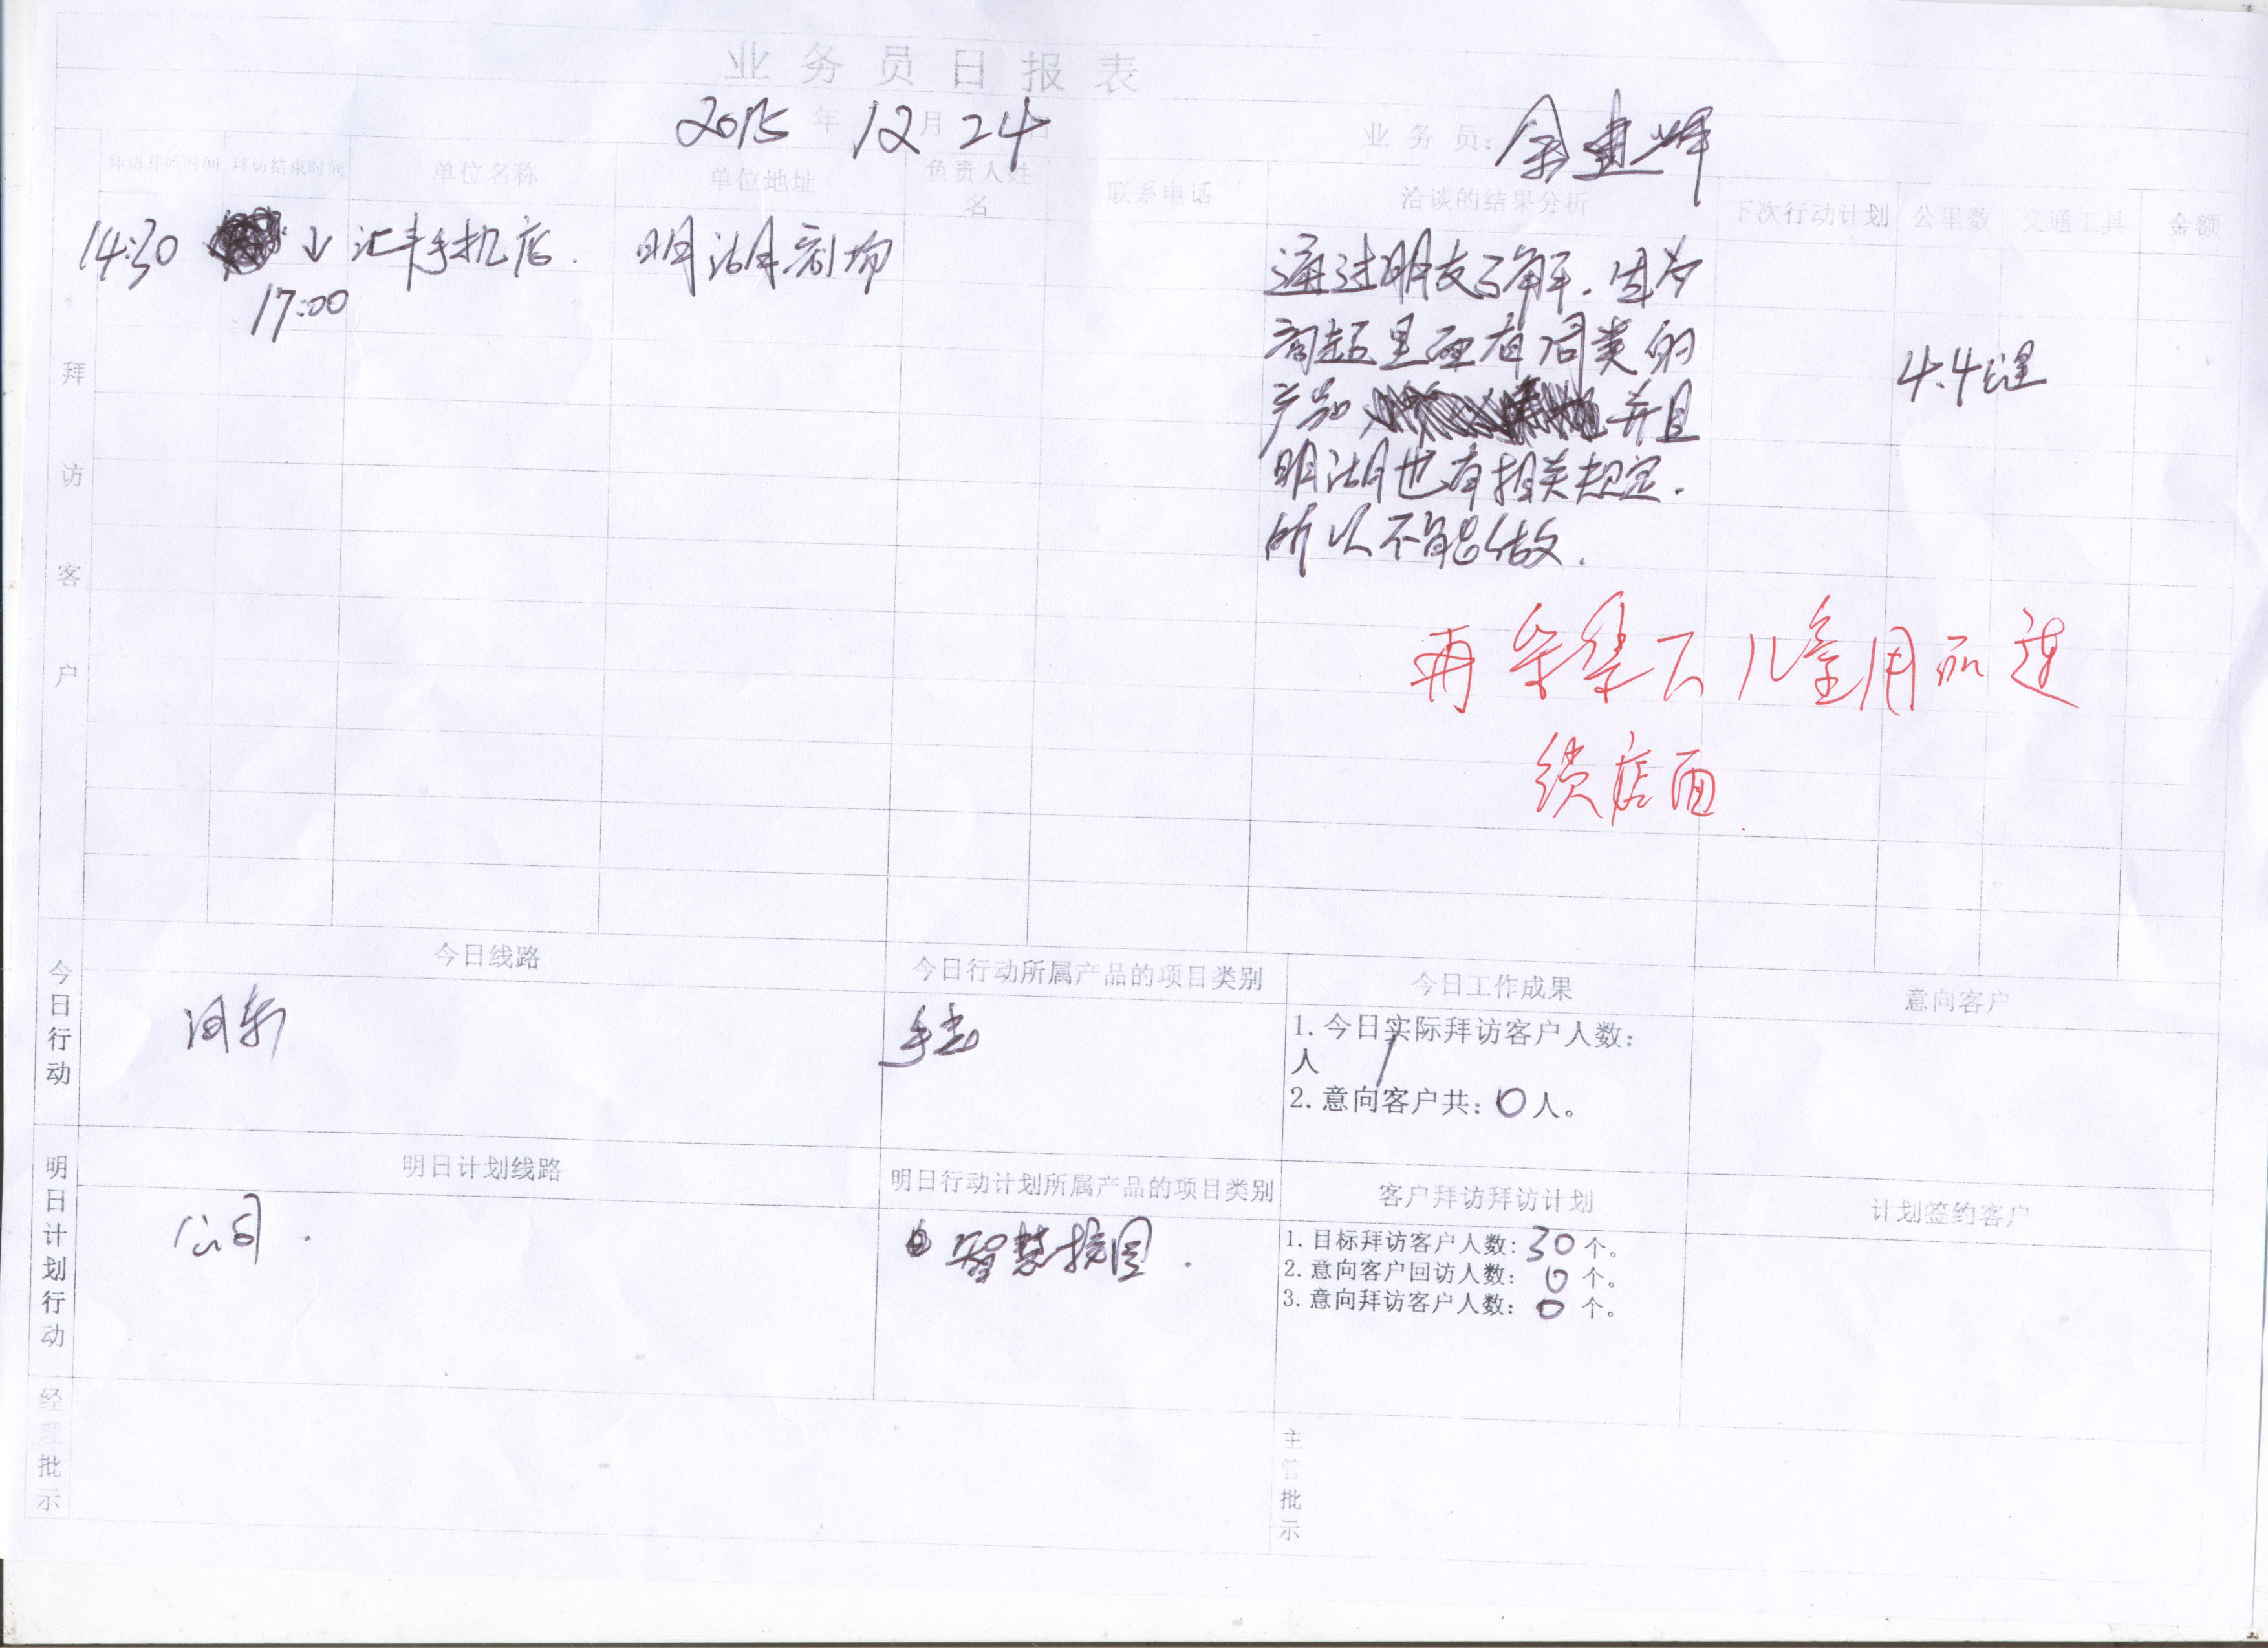 业务员日报表
2015 年 12 月 24 日
业 务 员: 余建辉
拜访客户
拜访开始时间 拜访结束时间 单位名称 单位地址 负责人姓名 联系电话 洽谈的结果分析 下次行动计划 公里数 交通工具 金额
14:30 17:00 汇丰手机店. 明湖广场 4.4公里
通过朋友了解.因为
商超里面有同类的
产品 并且
明湖也有相关规定.
所以不能做.
再采集下儿童用品连
锁店面.
今日行动
今日线路 今日行动所属产品的项目类别 今日工作成果 意向客户
河东 手表
1.今日实际拜访客户人数:
1 人
2.意向客户共: 0 人。
明日计划行动
明日计划线路 明日行动计划所属产品的项目类别 客户拜访拜访计划 计划签约客户
公司. 智慧校园.
1.目标拜访客户人数: 30 个。
2.意向客户回访人数: 0 个。
3.意向拜访客户人数: 0 个。
经理批示
主管批示